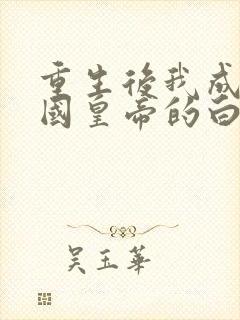 重生後我成
國皇帝的白
吳玉華